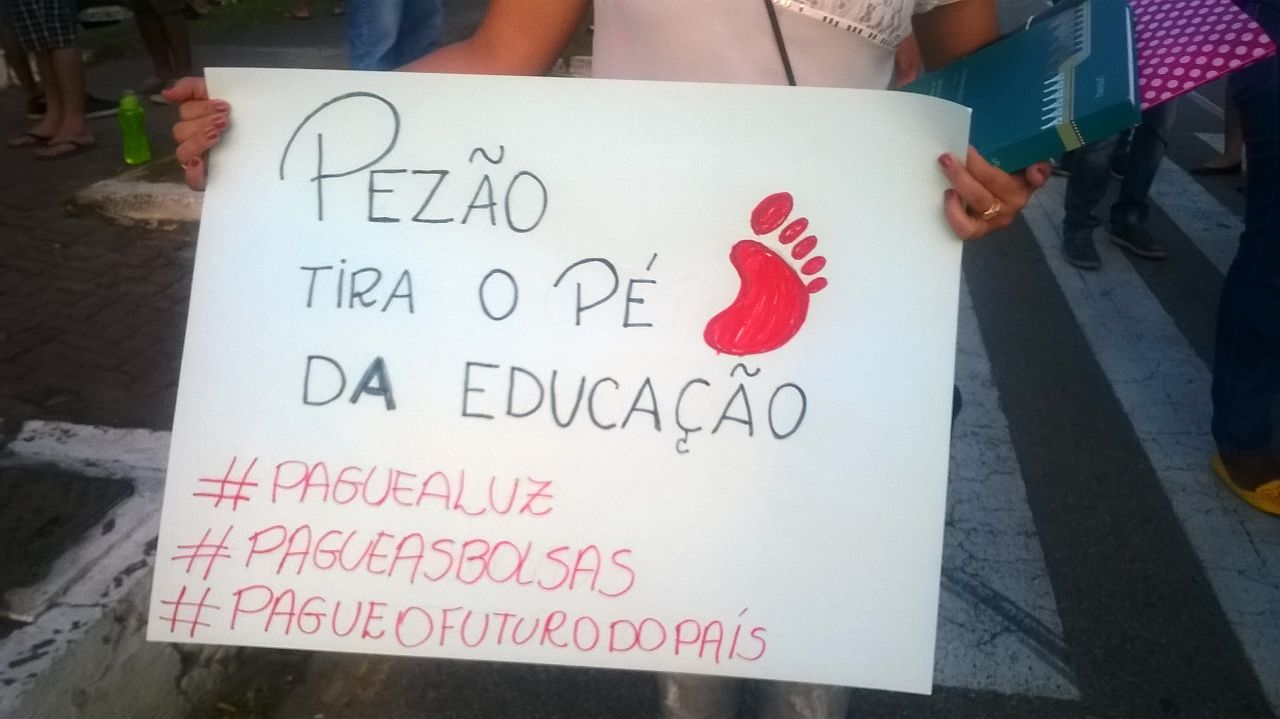 PEZÃO
TIRA O PÉ
DA EDUCAÇÃO
#PAGUEALUZ
#PAGUEASBOLSAS
#PAGUEOFUTURODOPAÍS